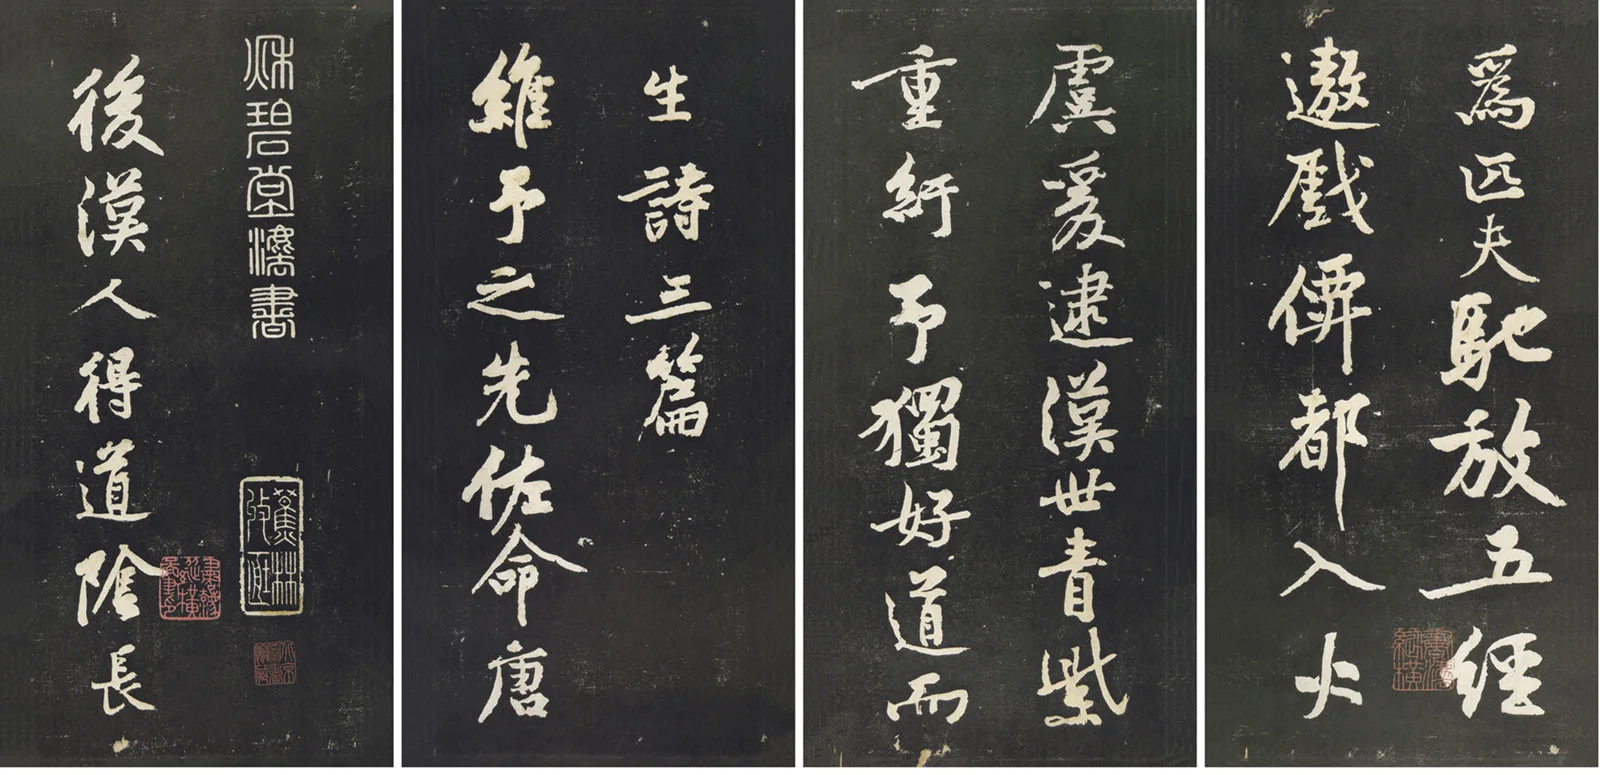 秌碧堂灋書
蕉林收藏
後漢人得道陰長
生詩三篇
維予之先佐命唐
虞爰逮漢世青紫
重紆予獨好道而
爲匹夫馳放五經
遨戲僊都入火